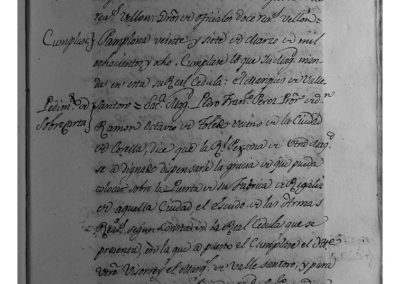 rea.s Vellon: Dros de oficiales doce rea.s Vellon
Cumplase} Pamplona veinte y siete de Marzo de mil
ochocientos y ocho. Cumplase lo que su Mag.d man
da en esta su Real Cedula: el Marques de Valle
Pedim.to de Santoro = Sac. Mag. Pedro Fran.co Perez Pro.r de D.n
Sobrecarta} Ramon Octavio de Toledo vecino de la Ciudad
de Corella dice que la R.l Persona de Vra Mag.
se a dignado dispensarle la gracia de que pueda
colocar sobre la Puerta de su Fabrica de Regaliz
de aquella Ciudad el escudo de las Armas
Rea.s segun consta de la Real Cedula que se
presenta, en la que a puesto el Cumplase el
Visorrey el Marq.s de Valle santoro, y para